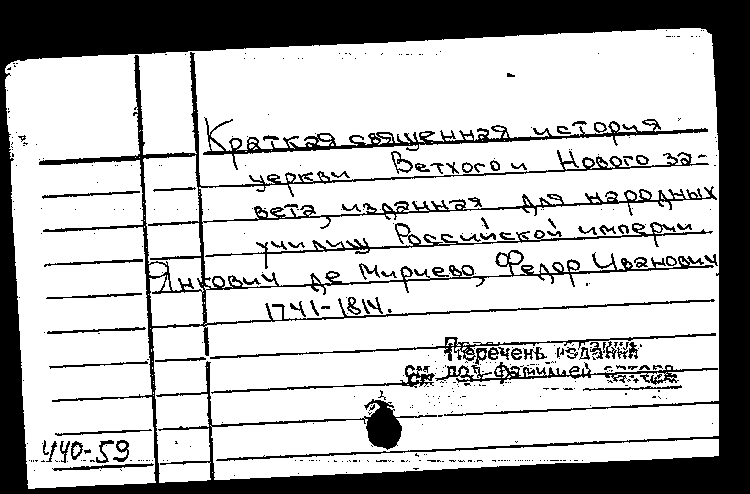 Краткая священная история
церкви Ветхого и Нового за-
вета, изданная для народных
училищ Российской империи.
Янкович де Мириево, Федор Иванович
1741-1814.
Перечень изданий
см под фамилией автора
440-59